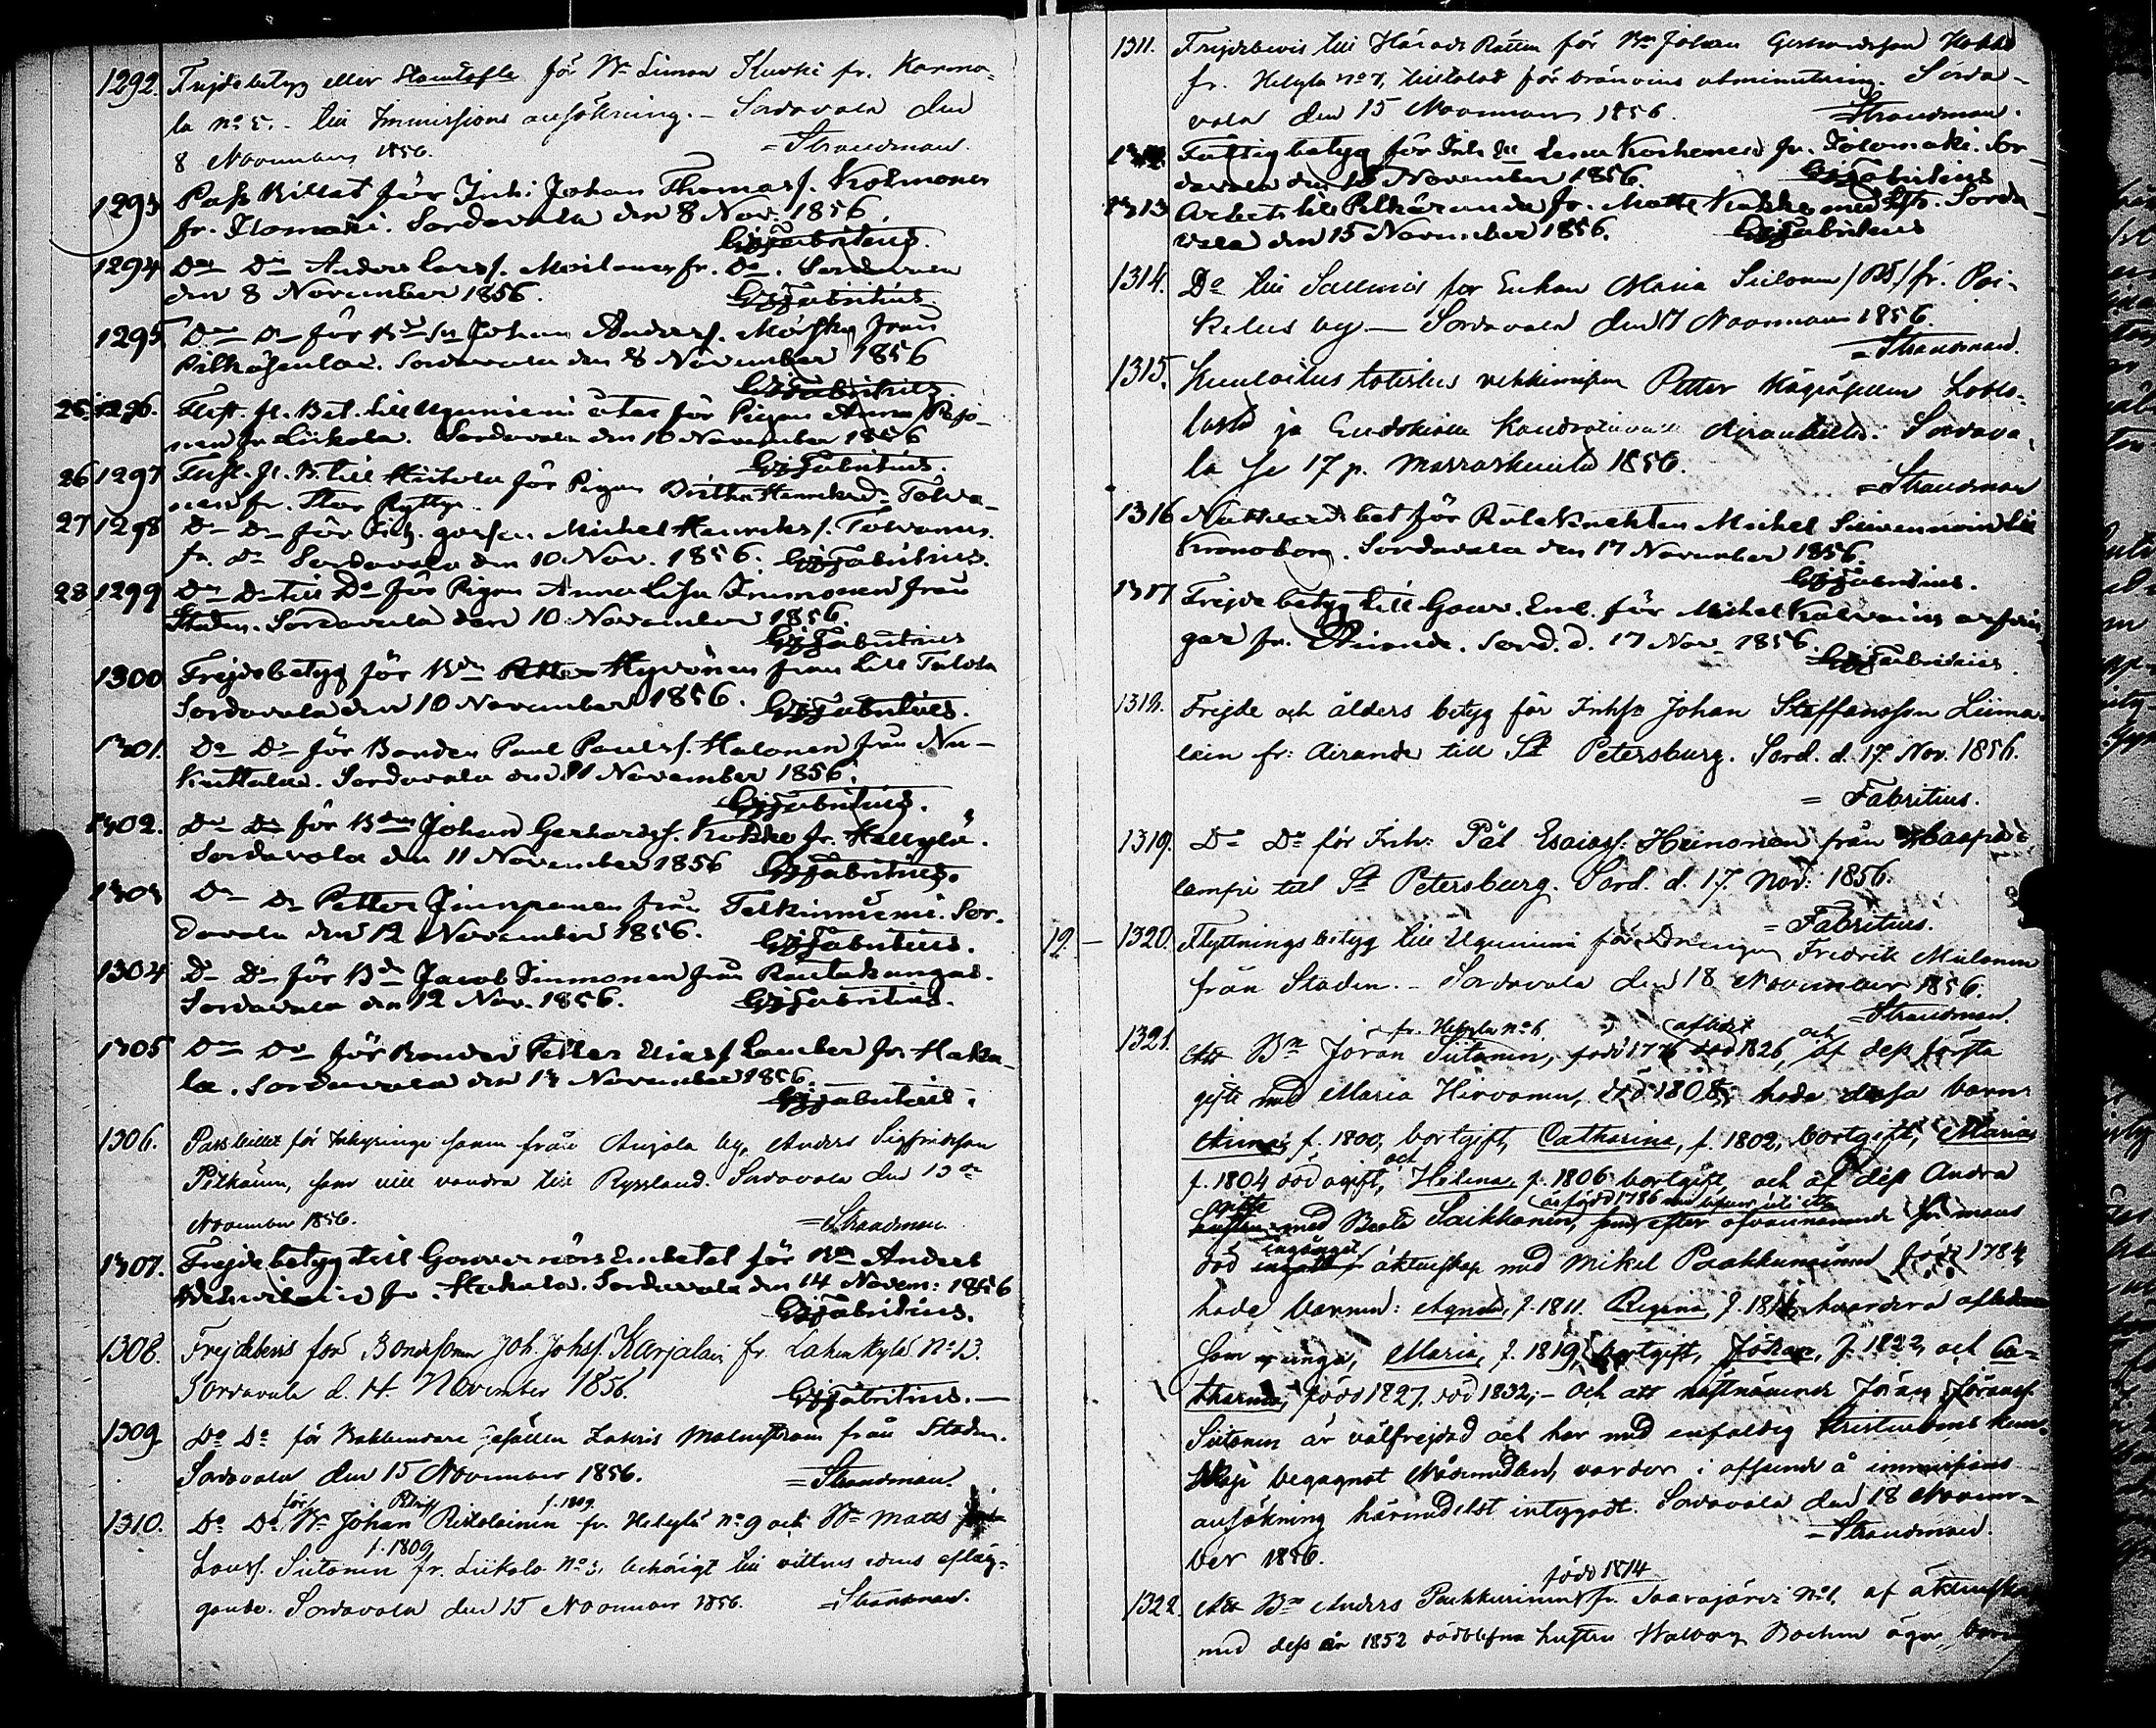 1292. Frejdebetyg eller Stamtafla för Bn Simon Kurki fr. Karmo-
la No 5. till Immissions ansökning. Sordavala den
8 November 1856. =Strandman.
1293 Pass Billet för Inh: Johan Thomass. Kolmonen
fr. Ilomäki. Sordavala den 8 Nov. 1856.
GjFabritius.
1294 Do Do Anders Larss. Moilanen fr. Do. Sordavala
den 8 November 1856. GjFabritius
1295 Do Do för Bdsn Johan Anderss. Mörsky från
Pitkäjenlax. Sordavala den 8 November 1856
GjFabritius
25. 1296. Flytt. Bet. till Uguniemi för Pigan Anna Repo-
nen fr. Liikola. Sordavala den 10 November 1856
GjFabritius.
26 1297 Flytt. B. till Hiitola för Pigan Britha Henriksdr Tolva-
nen fr. Stor Rytty.
27 1298 Do Do för Inh. gossen Michel Henrikss. Tolvanen
fr. do Sordavala den 10 Nov. 1856. GjFabritius.
28 1299 Do Do till Do för Pigan Anna Lisa Immonen från
Staden. Sordavala den 10 November 1856.
GjFabritius
1300 Frejdebetyg för Bdn Petter Hyvönen från Lill Tulola
Sordavala den 10 November 1856. GjFabritius.
1301. Do Do för Bonden Paul Paulss. Halonen från Nu-
kuttalax. Sordavala den 11 November 1856.
GjFabritius.
1302. Do Do för Bden Johan Gerhardss. Kokko fr. Helylä.
Sordavala den 11 November 1856 GjFabritius.
1303 Do Do Petter Jinnpanen från Telkinniemi. Sor-
davala den 12 November 1856. GjFabritius.
1304 Do Do för Bdn Jacob Immonen från Rautakangas.
Sordavala den 12 Nov. 1856. GjFabritius.
1305 Do Do för Bonden Petter Eliass Lamber fr. Haka-
la. Sordavala den 13 November 1856.
GjFabritius.
1306. Passbillet för Inhysinge sonen från Anjala by, Anders Sigfridsson
Pitkänen, som vill vandra till Ryssland. Sordavala den 13de
November 1856. =Strandman
1307. Frejdebetyg till Gouvernörs Embetet för Bdn Anders
fr. Hakala. Sordavala den 14 Novem: 1856
GjFabritius.
1308. Frejdebevis för Bondesonen Joh. Johss. Karjalain fr. Lahenkylä No 13.
Sordavala d. 14 November 1856. GjFabritius.—
1309 Do Do för Bokbindare gesällen Zakris Malmström från Staden.
Sordavala den 15 November 1856. =Strandman.
1310. Do Do för Bn Johan Riikolainen f. 1809 fr. Helylä No 9 och Bn Matts
Larss. Siitonen f. 1809 fr. Liikola No 3, behörigt till vittnes edens afläg-
gande. Sordavala den 15 November 1856. =Strandman.
1311. Frejdebevis till Härads Rätten för Bn Johan Gerhardsson Kokko
fr. Helylä No 7, tilltalad för bränvins utminutering. Sorda-
vala den 15 November 1856. =Strandman.
1312. Fattig betyg för Inh. Lena Korhonen fr. Ilomäki. Sor-
davala den 15 November 1856. GjFabritius
1313 Arbets till Pitkäranda fr. Matts Kokko med Hstr. Sorda-
vala den 15 November 1856. GjFabritius
1314. Do till Salmis för Enkan Maria Siitonen fr. Poi-
kelus by — Sordavala den 17 November 1856.
=Strandman.
1315. Kuuloitus totistus vihkimisen Petter Lohio-
lasta ja Eudokian Sordava-
la se 17 p. Marraskuuta 1856.
=Strandman
1316 Nattvards bet för Rotebonden Michel till
Kronoborg. Sordavala den 17 November 1856.
GjFabritius.
1317 Frejdebetyg till Gouv. Emb. för Michel Kalvains arfvin-
gar fr. Airanne. Sord. d. 17 Nov. 1856.
GjFabritius
1318. Frejde och ålders betyg för Inhse Johan Staffansson Liima-
lain fr: Airanne till St Petersburg. Sord. d. 17. Nov. 1856.
= Fabritius.
1319. Do Do för Inh: Pål Esaiass. Heinonen från Haapa-
lampi till St Petersburg. Sord. d. 17. Nov: 1856.
= Fabritius.
12. — 1320. Flyttningsbetyg till Uguniemi för Drengen Fredrik Miilonen
från Staden. — Sordavala den 18 November 1856.
=Strandman.
1321. Att Bn Jöran Siitonen, fr. Helyla No 6, född 1776 afliden 1826, och af dess första
gifte med Maria Hirvonen, död 1808, hade dessa barn:
Anna, f. 1800, bortgift, Catharina, f. 1802, bortgift, Maria
f. 1804 död ogift, och Helena, f. 1806 bortgift, och af dess andra
gifte med Beata Saikkonen, är född 1786 som efter ofvannämnde sin mans
död ingånget äktenskap med Mikel Paakkunainen född 1784,
hade barnen: Agneta, f. 1811. Regina, f. 1814, hvardera aflidna
som unga, Maria, f. 1819, bortgift, Johan, f. 1822, och Ca-
tharina, född 1827, död 1832; — Och att nästnämnde Jöran Jöranss.
Siitonen är välfrejdad och har med enfaldig Kristendoms kun-
skap begagnat Nådemedlen, varder i afseende å immissions
ansökning härmedelst intygadt. Sordavala den 18 Novem-
ber 1856. =Strandman.
1322. Att Bn Anders Paakkunainen född 1814 fr. Saavajärvi No 1, af äktenskap
med dess år 1852 dödblefna hustru Walborg äger barn